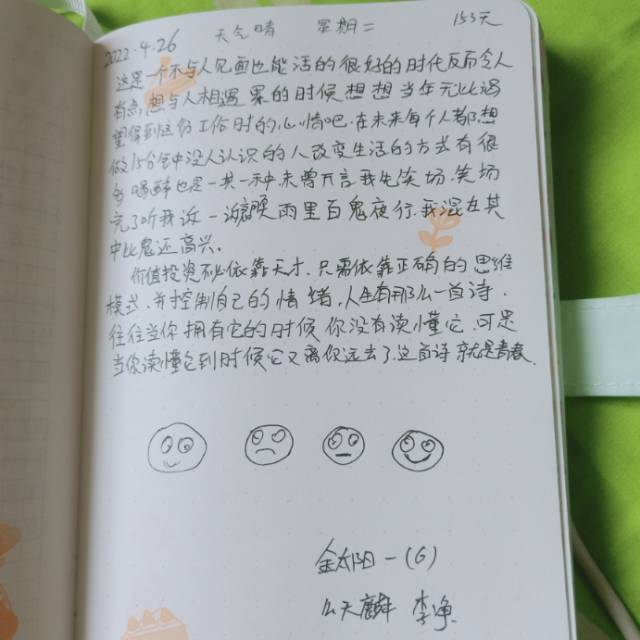 2022.4.26 天气晴 星期二 153天
这是一个不与人见面也能活的很好的时代反而令人
有点想与人相遇 累的时候想想当年无比渴
望得到这份工作时的心情吧.在未来每个人都想
做15分钟没人认识的人改变生活的方式有很
多 喝醉也是其一种 未曾开言我先笑场.笑场
完了听我诉一诉 雨里百鬼夜行.我混在其
中比鬼还高兴.
价值投资不必依靠天才.只需依靠正确的思维
模式.并控制自己的情绪.人生有那么一首诗.
往往当你拥有它的时候你没有读懂它.可是
当你读懂它到时候它又离你远去了.这首诗就是青春.
金太阳一(6)
么天麟 李净